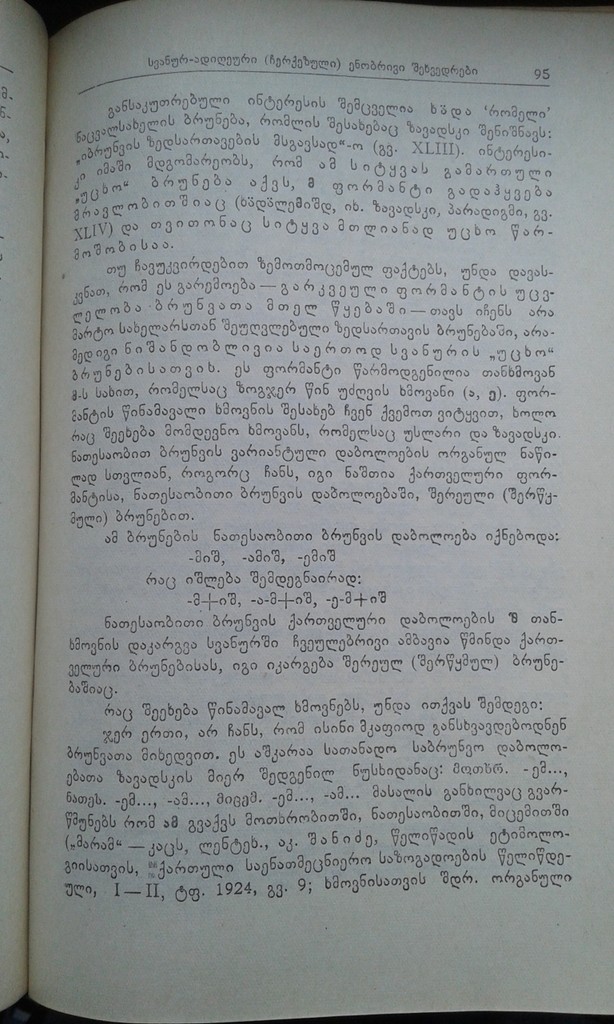 სვანურ-ადიღეური (ჩერქეზული) ენობრივი შეხვედრები 95
განსაკუთრებული ინტერესის შემცველია ხჷდა ‘რომელი’
ნაცვალსახელის ბრუნება, რომლის შესახებაც ზავადსკი შენიშნავს:
„იბრუნვის ზედსართავების მსგავსად“-ო (გვ. XLIII). ინტერესი-
კი იმაში მდგომარეობს, რომ ამ სიტყვას გამართული
„უცხო“ ბრუნება აქვს, მ ფორმანტი გადაჰყვება
მრავლობითშიაც (იხ. ზავადსკი, პარადიგმი, გვ.
XLIV) და თვითონაც სიტყვა მთლიანად უცხო წარ-
მოშობისაა.
თუ ჩავუკვირდებით ზემოთმოცემულ ფაქტებს, უნდა დავას-
კვნათ, რომ ეს გარემოება — გარკვეული ფორმანტის უცვ-
ლელობა ბრუნვათა მთელ წყებაში — თავს იჩენს არა
მარტო სახელარსთან შეუღვლებული ზედსართავის ბრუნებაში, არა-
მედ იგი ნიშანდობლივია საერთოდ სვანურის „უცხო“
ბრუნებისათვის. ეს ფორმანტი წარმოდგენილია თანხმოვან
მ-ს სახით, რომელსაც ზოგჯერ წინ უძღვის ხმოვანი (ა, ე). ფორ-
მანტის წინამავალი ხმოვნის შესახებ ჩვენ ქვემოთ ვიტყვით, ხოლო
რაც შეეხება მომდევნო ხმოვანს, რომელსაც უსლარი და ზავადსკი.
ნათესაობით ბრუნვის ვარიანტული დაბოლოების ორგანულ ნაწი-
ლად სთვლიან, როგორც ჩანს, იგი ნაშთია ქართველური ფორ-
მანტისა, ნათესაობითი ბრუნვის დაბოლოებაში, შერეული (შერწყ-
მული) ბრუნებით.
ამ ბრუნების ნათესაობითი ბრუნვის დაბოლოება იქნებოდა:
-მიშ, -ამიშ, -ემიშ
რაც იშლება შემდეგნაირად:
-მ+იშ, -ა-მ+იშ, -ე-მ+იშ
ნათესაობითი ბრუნვის ქართველური დაბოლოების შ თან-
ხმოვნის დაკარგვა სვანურში ჩვეულებრივი ამბავია წმინდა ქართ-
ველური ბრუნებისას, იგი იკარგება შერეულ (შერწყმულ) ბრუნე-
ბაშიაც.
რაც შეეხება წინამავალ ხმოვნებს, უნდა ითქვას შემდეგი:
ჯერ ერთი, არ ჩანს, რომ ისინი მკაფიოდ განსხვავდებოდნენ
ბრუნვათა მიხედვით. ეს აშკარაა სათანადო საბრუნვო დაბოლო-
ებათა ზავადსკის მიერ შედგენილ ნუსხიდანაც: მოთხრ. -ემ...,
ნათეს. -ემ..., -ამ..., მიცემ. -ემ..., -ამ... მასალის განხილვაც გვარ-
წმუნებს რომ ამ გვაქვს მოთხრობითში, ნათესობითში, მიცემითში
(„მარამ“ — კაცს, ლენტეხ., აკ. შანიძე, წელიწადის ეტიმოლო-
გიისათვის, ქართული საენათმეცნიერო საზოგადოების წელიწდე-
ული, I—II, ტფ. 1924, გვ. 9; ხმოვნისათვის შდრ. ორგანული